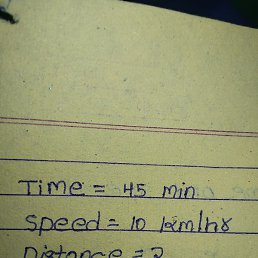 Time = 45 min
Speed = 10 km/hr
Distance = ?